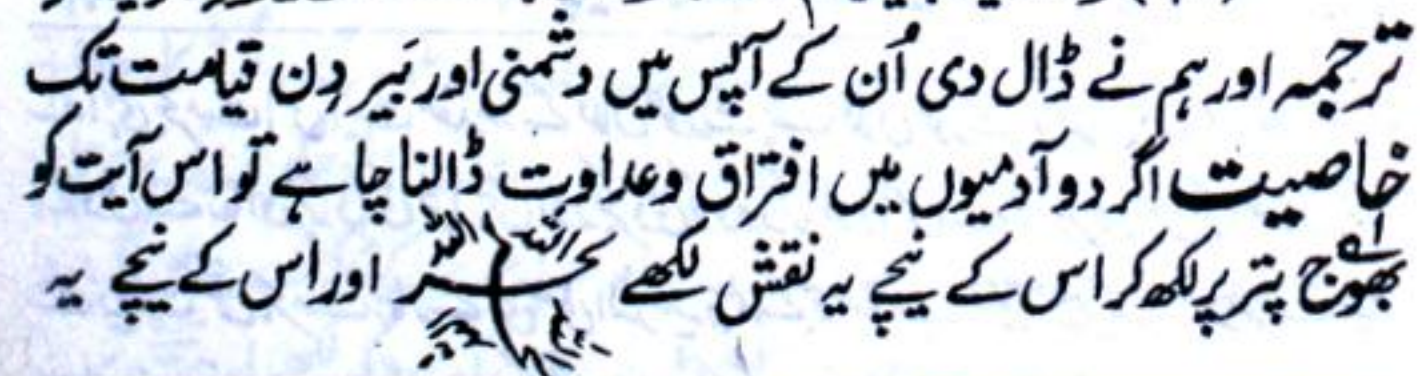 ترجمہ اور ہم نے ڈال دی اُن کے آپس میں دشمنی اور بَیر دِن قیامت تک
خاصیت اگر دو آدمیوں میں افتراق و عداوت ڈالنا چاہے تو اس آیت کو
بھوج پتر پر لکھ کر اس کے نیچے یہ نقش لکھے اور اس کے نیچے یہ